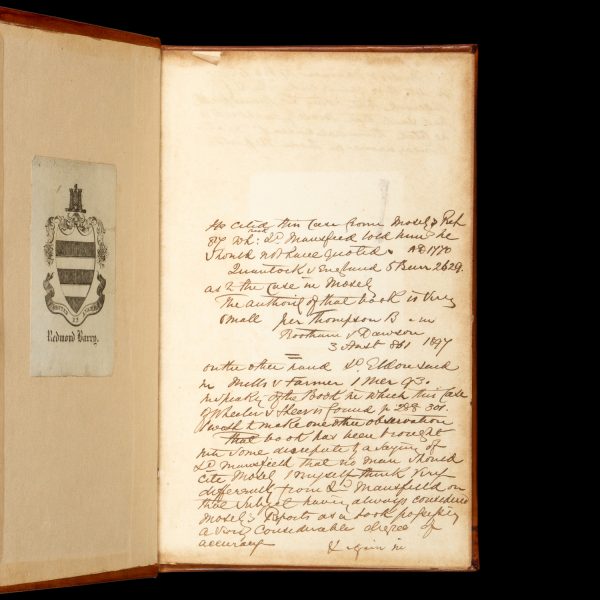 Redmond Barry.
He cited this Case from Mosely Rep
87 Wh: & Ld. Mansfield told him he
should not have quoted AD 1770
Quantock v England 5 Burr 2629.
as to the case in Mosely
The authority of that book is very
small per Thompson B in
Bootham v Dawson
3 Anst 861 1897
on the other hand Ld. Eldon said
in Mills v Farmer 1 Mer 93.
in speaky of the Book in which this Case
of Wheeler v Sheer is found p 288 301.
I wish to make one other observation
That book has been brought
into some disrepute by a saying of
Ld Mansfield that no man should
cite Mosely I myself think very
differently from Ld Mansfield on
that subject having always considered
Mosely's Reports as a book possessing
a very Considerable degree of
accuracy